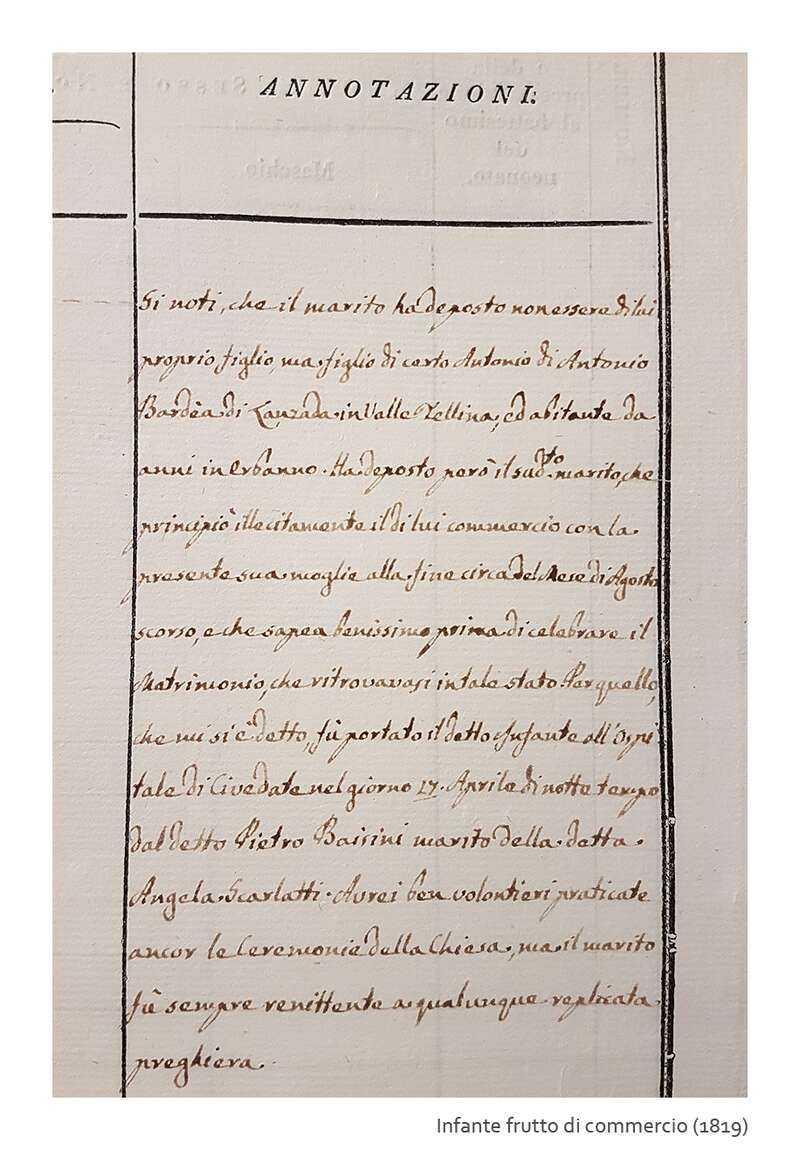 ANNOTAZIONI.
Si noti, che il marito ha deposto non essere di lui
proprio figlio, ma figlio di certo Antonio di Antonio
Bardèa di Lanzada in Valle Tellina, ed abitante da
anni in Erbanno. Ha deposto però il sudto. marito, che
principiò illecitamente il di lui commercio con la
presente sua moglie alla fine circa del Mese di Agosto
scorso, e che sapea benissimo prima di celebrare il
Matrimonio, che ritrovavasi in tale stato Per quello,
che mi si è detto, fù portato il detto Infante all'Ospi
tale di Civedate nel giorno 17. Aprile di notte tempo
dal detto Pietro Baisini marito della detta
Angela Scarlatti. Avrei ben volontieri praticate
ancor le Ceremonie della Chiesa, ma il marito
fù sempre renittente a qualunque replicata
preghiera.
Infante frutto di commercio (1819)